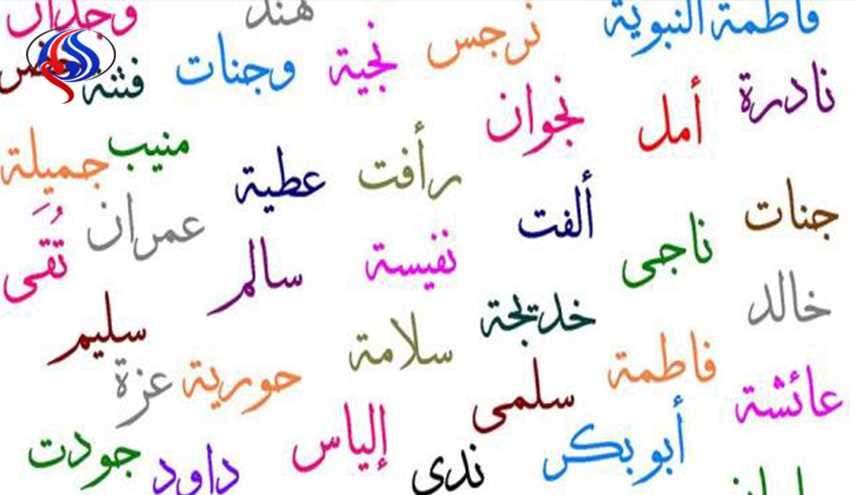 فاطمة النبوية
هند
وجدان
نرجس
نجية
وجنات
فتنة
نادرة
أمل
نجوان
منيب
جميلة
رأفت
عطية
ألفت
جنات
عمران
تُقَى
ناجى
نفيسة
سالم
خالد
خديجة
سليم
سلامة
فاطمة
حورية
عزة
سلمى
عائشة
أبو بكر
إلياس
ندى
داود
جودت